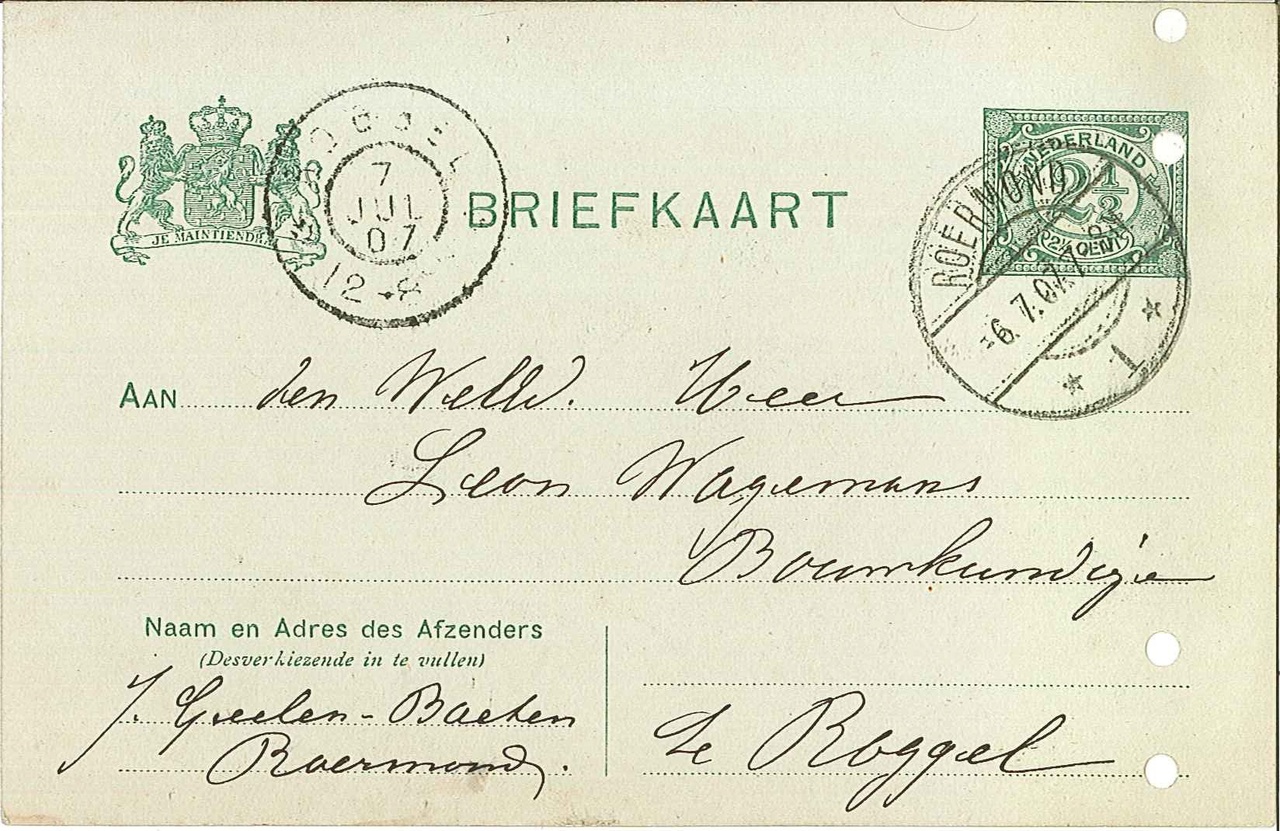 JE MAINTIENDRAI
7
JUL
07
12-8
BRIEFKAART
NEDERLAND
2½
2½ CENT
ROERMOND
-6.7.07.7
1
AAN den WelEd. Heer
Leon Wagemans
Bouwkundige
te Roggel
Naam en Adres des Afzenders
(Desverkiezende in te vullen)
J. Geelen-Baeten
Roermond.